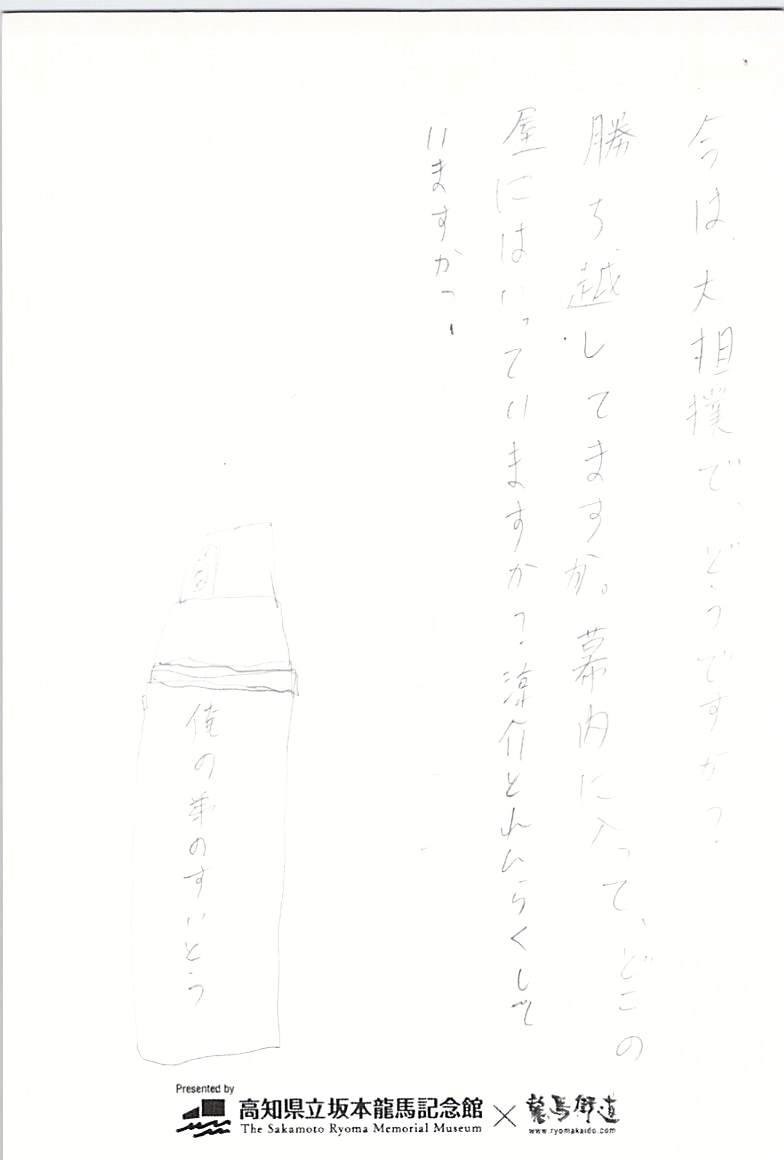 今は、大相撲で、どうですか?
勝ち越してますか。幕内に入って、どこの
屋にはいっていますか?涼介とれんらくして
いますか?
俺の弟のすいとう
Presented by
高知県立坂本龍馬記念館
The Sakamoto Ryoma Memorial Museum
×
龍馬街道
www.ryomakaido.com